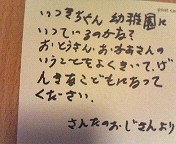 post ca
いつきちゃん 幼稚園に
いっているのかな?
おとうさん おかあさんの
いうことをよくきいて、げ
んきなこどもになって
ください.
さんたのおじさんより